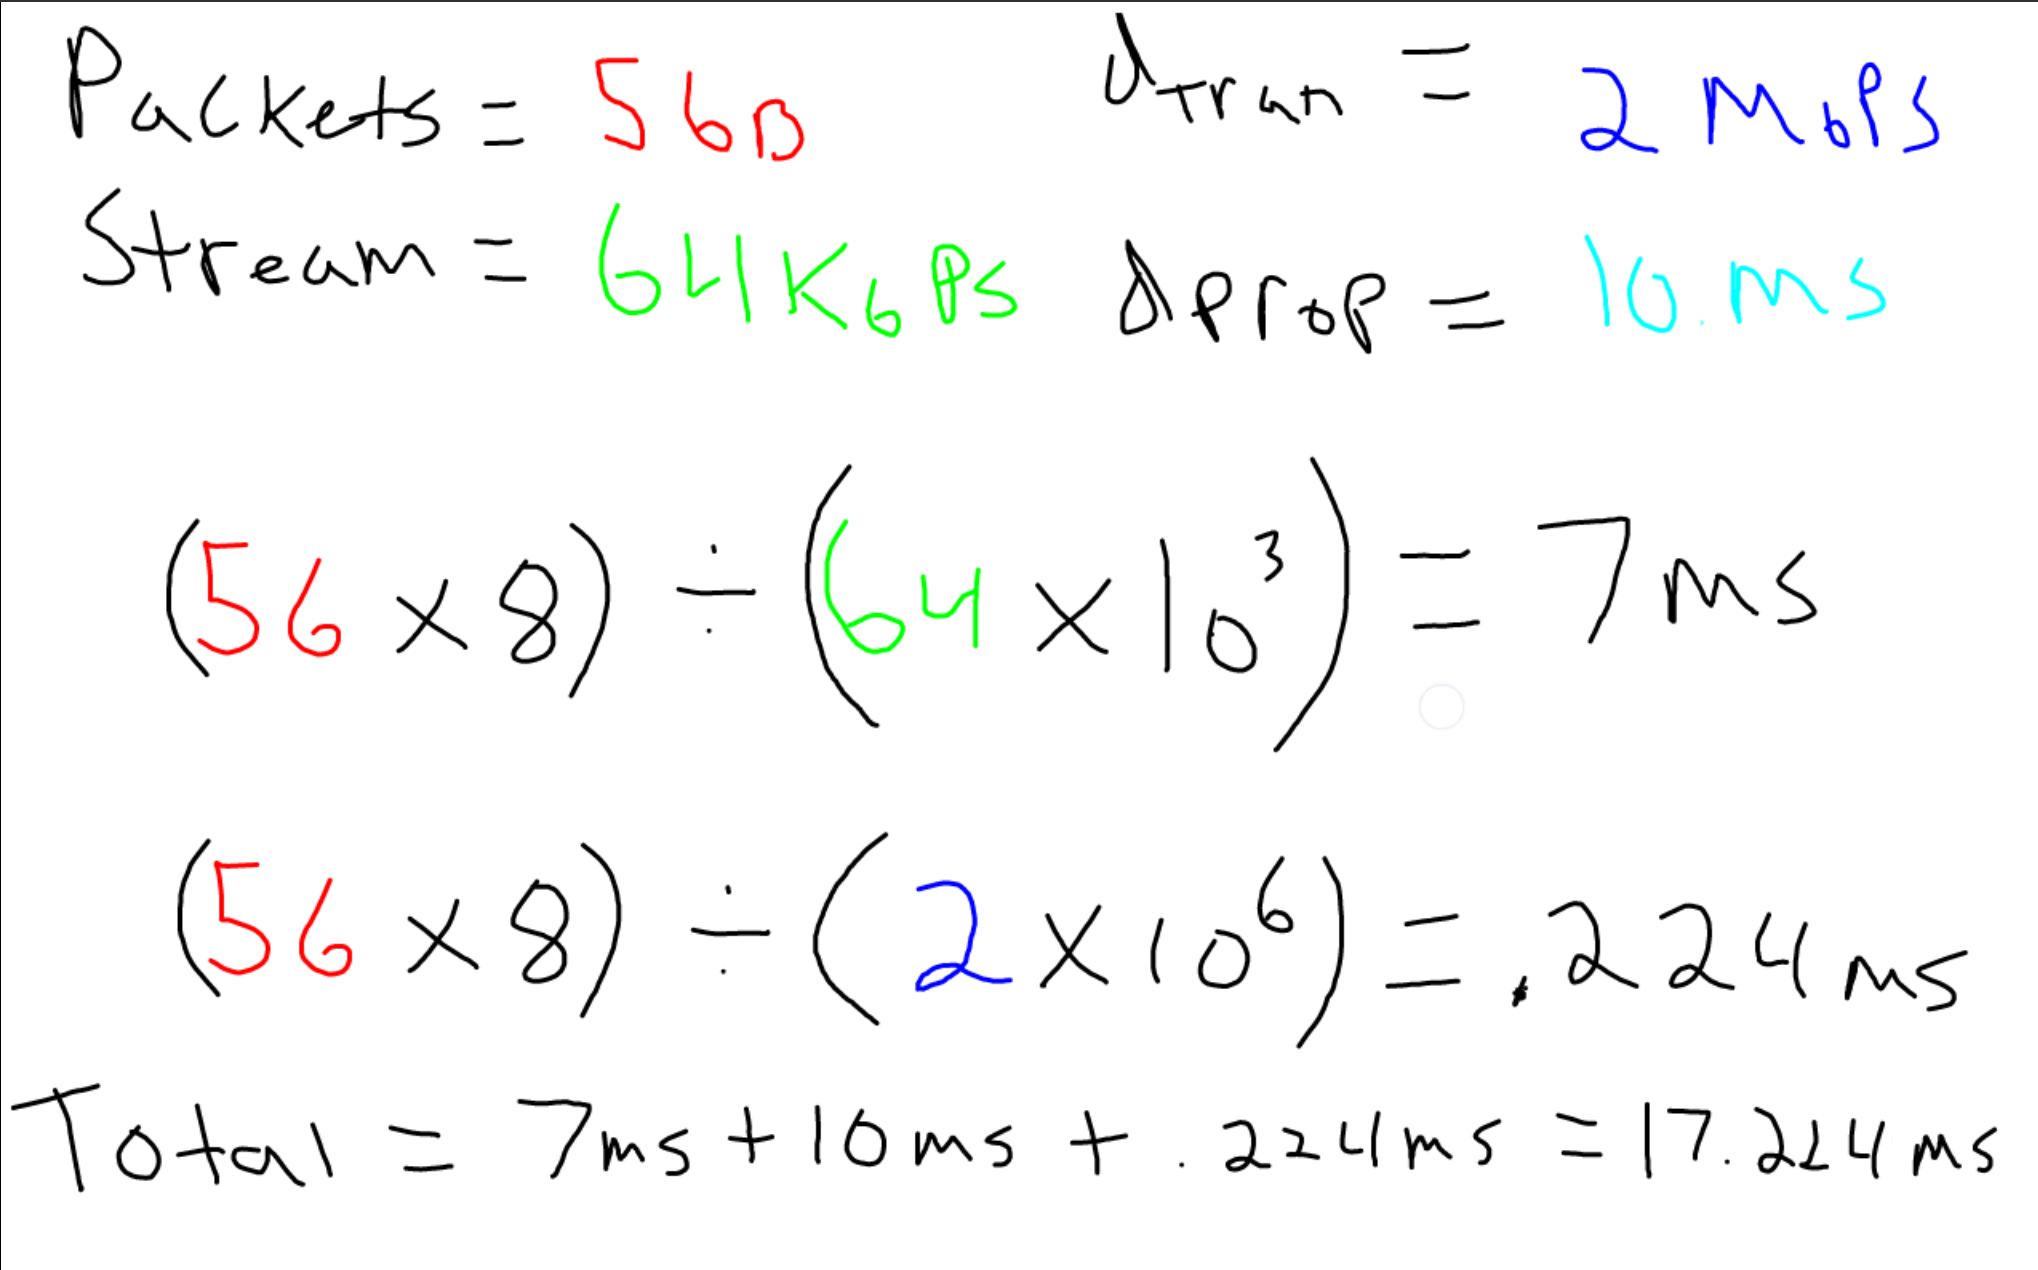 Packets = 56B dTran = 2 Mbps
Stream = 64Kbps dprop = 10.ms
(56 x 8) ÷ (64 x 10³) = 7ms
(56 x 8) ÷ (2 x 10⁶) = .224ms
Total = 7ms + 10ms + .224ms = 17.224ms